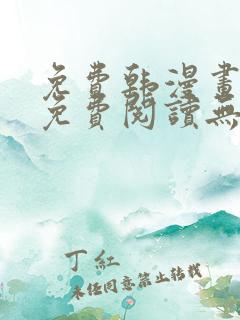 免費韩漫畫
免費閱讀無
丁紅
未经同意禁止转载